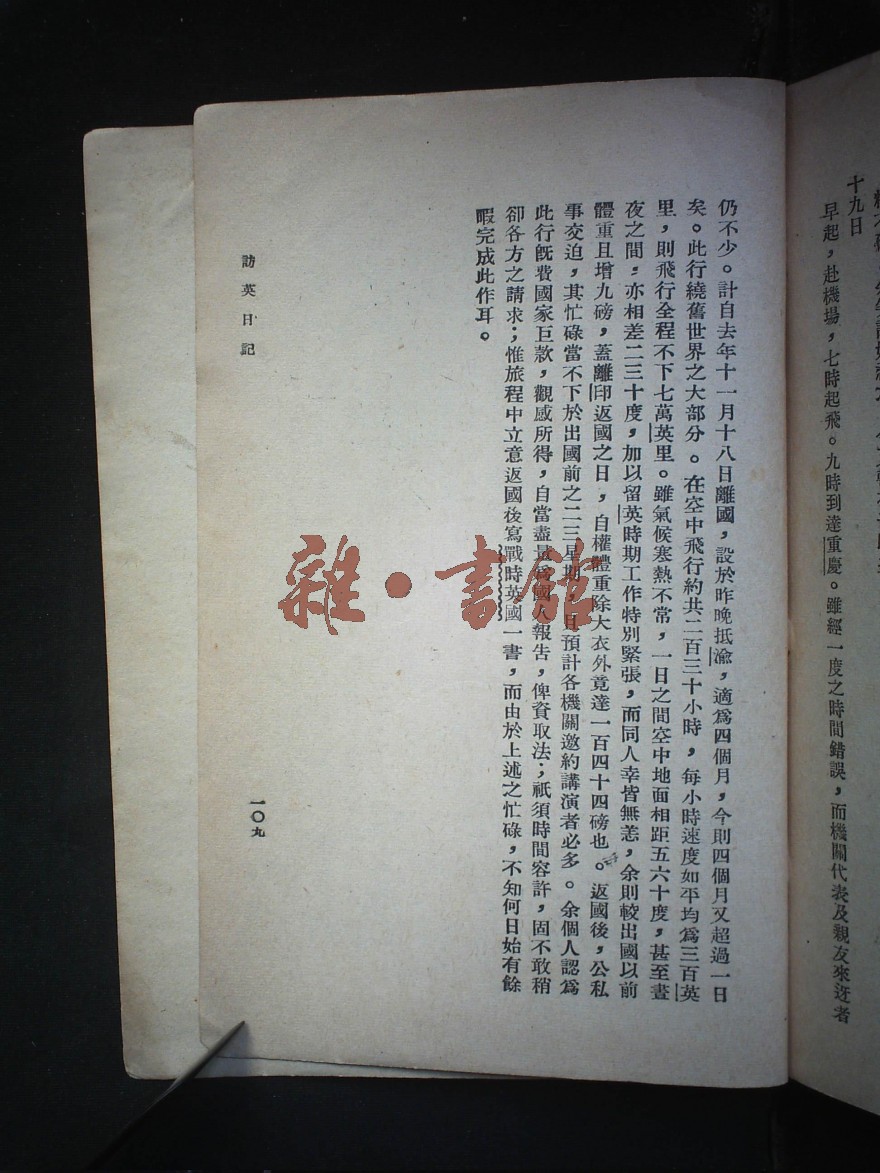 十九日
早起，赴機場，七時起飛。九時到達重慶。雖經一度之時間錯誤，而機關代表及親友來迓者
仍不少。計自去年十一月十八日離國，設於昨晚抵渝，適爲四個月，今則四個月又超過一日
矣。此行繞舊世界之大部分。在空中飛行約共二百三十小時，每小時速度如平均爲三百英
里，則飛行全程不下七萬英里。雖氣候寒熱不常，一日之間空中地面相距五六十度，甚至晝
夜之間，亦相差二三十度，加以留英時期工作特別緊張，而同人幸皆無恙，余則較出國以前
體重且增九磅，蓋離印返國之日，自權體重除大衣外竟達一百四十四磅也。返國後，公私
事交迫，其忙碌當不下於出國前之二三星期，且預計各機關邀約講演者必多。余個人認爲
此行旣費國家巨款，觀感所得，自當盡量爲國人報告，俾資取法；祇須時間容許，固不敢稍
卻各方之請求；惟旅程中立意返國後寫戰時英國一書，而由於上述之忙碌，不知何日始有餘
暇完成此作耳。
訪英日記
一〇九
雜·書館